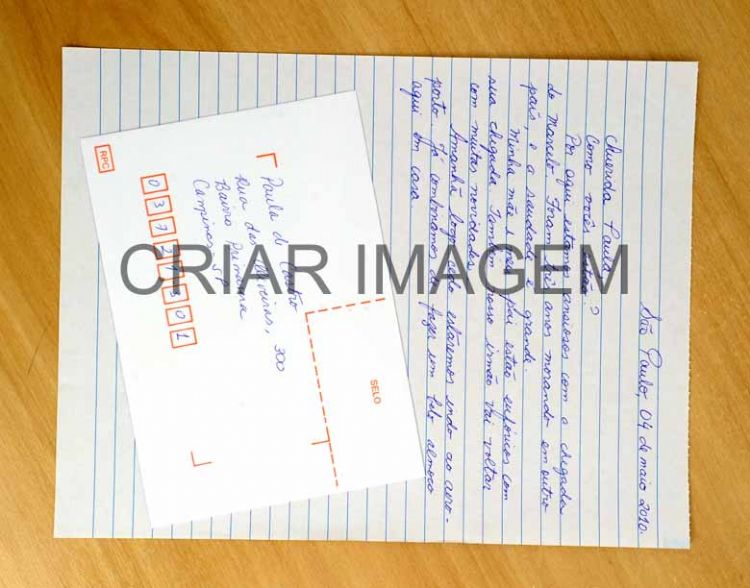 São Paulo, 04 de maio 2010.
Querida Paula
Como vocês estão?
Por aqui estamos ansiosos com a chegada
do Marcelo. Foram anos morando em outro
país, e a saudade é grande.
Minha mãe e meu pai estão eufóricos com
sua chegada. Também nosso irmão vai voltar
com muitas novidades.
Amanhã logo cedo estaremos indo ao aero-
porto. Já combinamos de fazer um belo almoço
aqui em casa.
SELO
Paula de Castro
Rua das 300
Bairro Primavera
Campinas SP
RPC
CRIAR IMAGEM